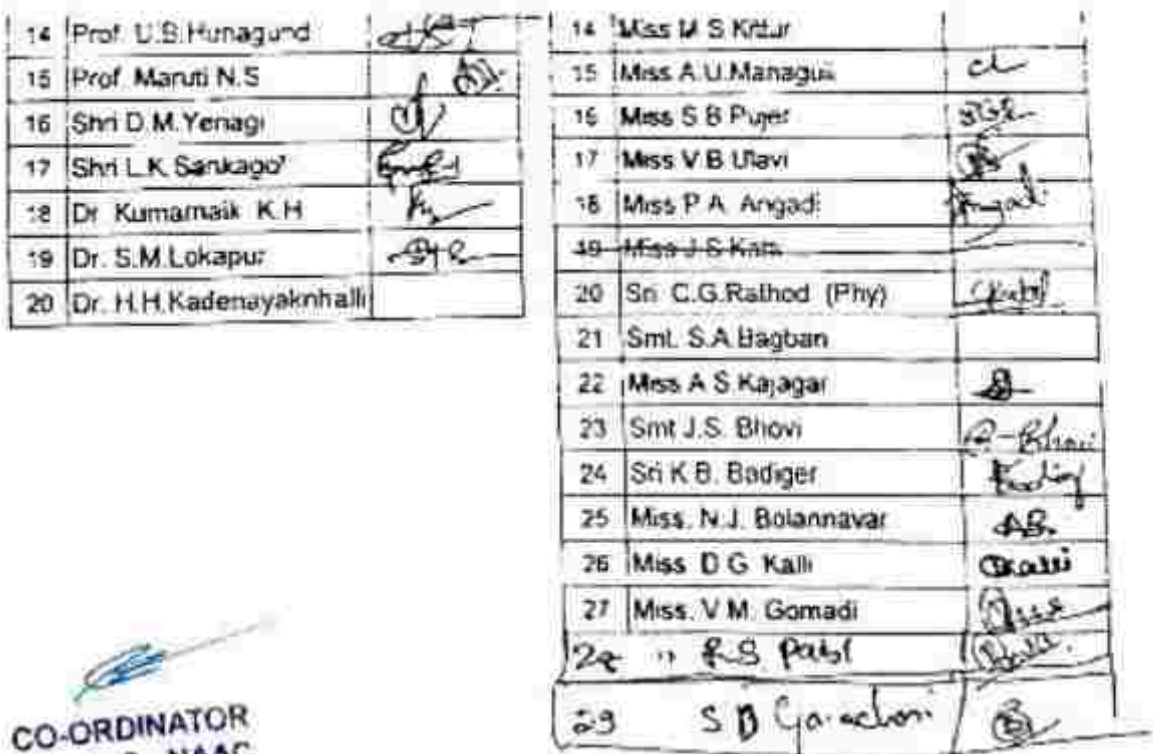 14 Prof. U.B.Hunagund
15 Prof Maruti N.S
16 Shri D.M.Yenagi
17 Shri L.K.Sankagol
18 Dr. Kumarnaik K.H
19 Dr. S.M.Lokapur
20 Dr. H.H.Kadenayaknhalli
14 Miss M S Kittur
15 Miss A.U.Managuli
16 Miss S B Pujer
17 Miss V B Ulavi
18 Miss P A. Angadi Angadi
19 Miss J S
20 Sri C.G.Rathod (Phy)
21 Smt. S.A.Bagban
22 Miss A S Kajagar
23 Smt J.S. Bhovi
24 Sri K B. Badiger
25 Miss. N.J. Bolannavar AB.
26 Miss D G Kalli
27 Miss. V M. Gomadi
28 "
29 S B
CO-ORDINATOR
NAAC